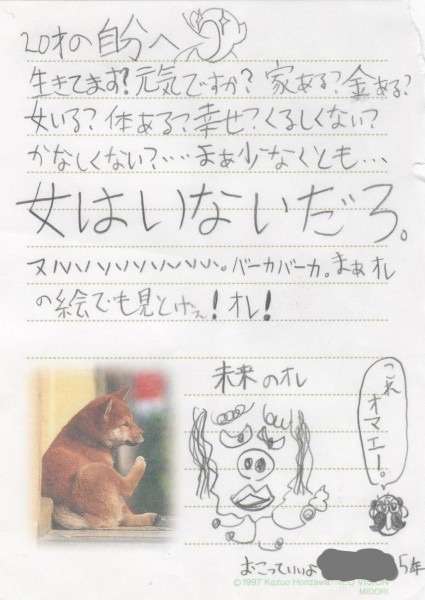 20才の自分へ
生きてます?元気ですか?家ある?金ある?
女いる?体ある?幸せ?くるしくない?
かなしくない?……まぁ少なくとも…
女はいないだろ。
バーカバーカ。まぁオレ
の絵でも見とけぇ!オレ!
未来のオレ
これオマエー。
おこっていいよ
5年
©1997 Kazuo Honzawa
VISION
MIDORI